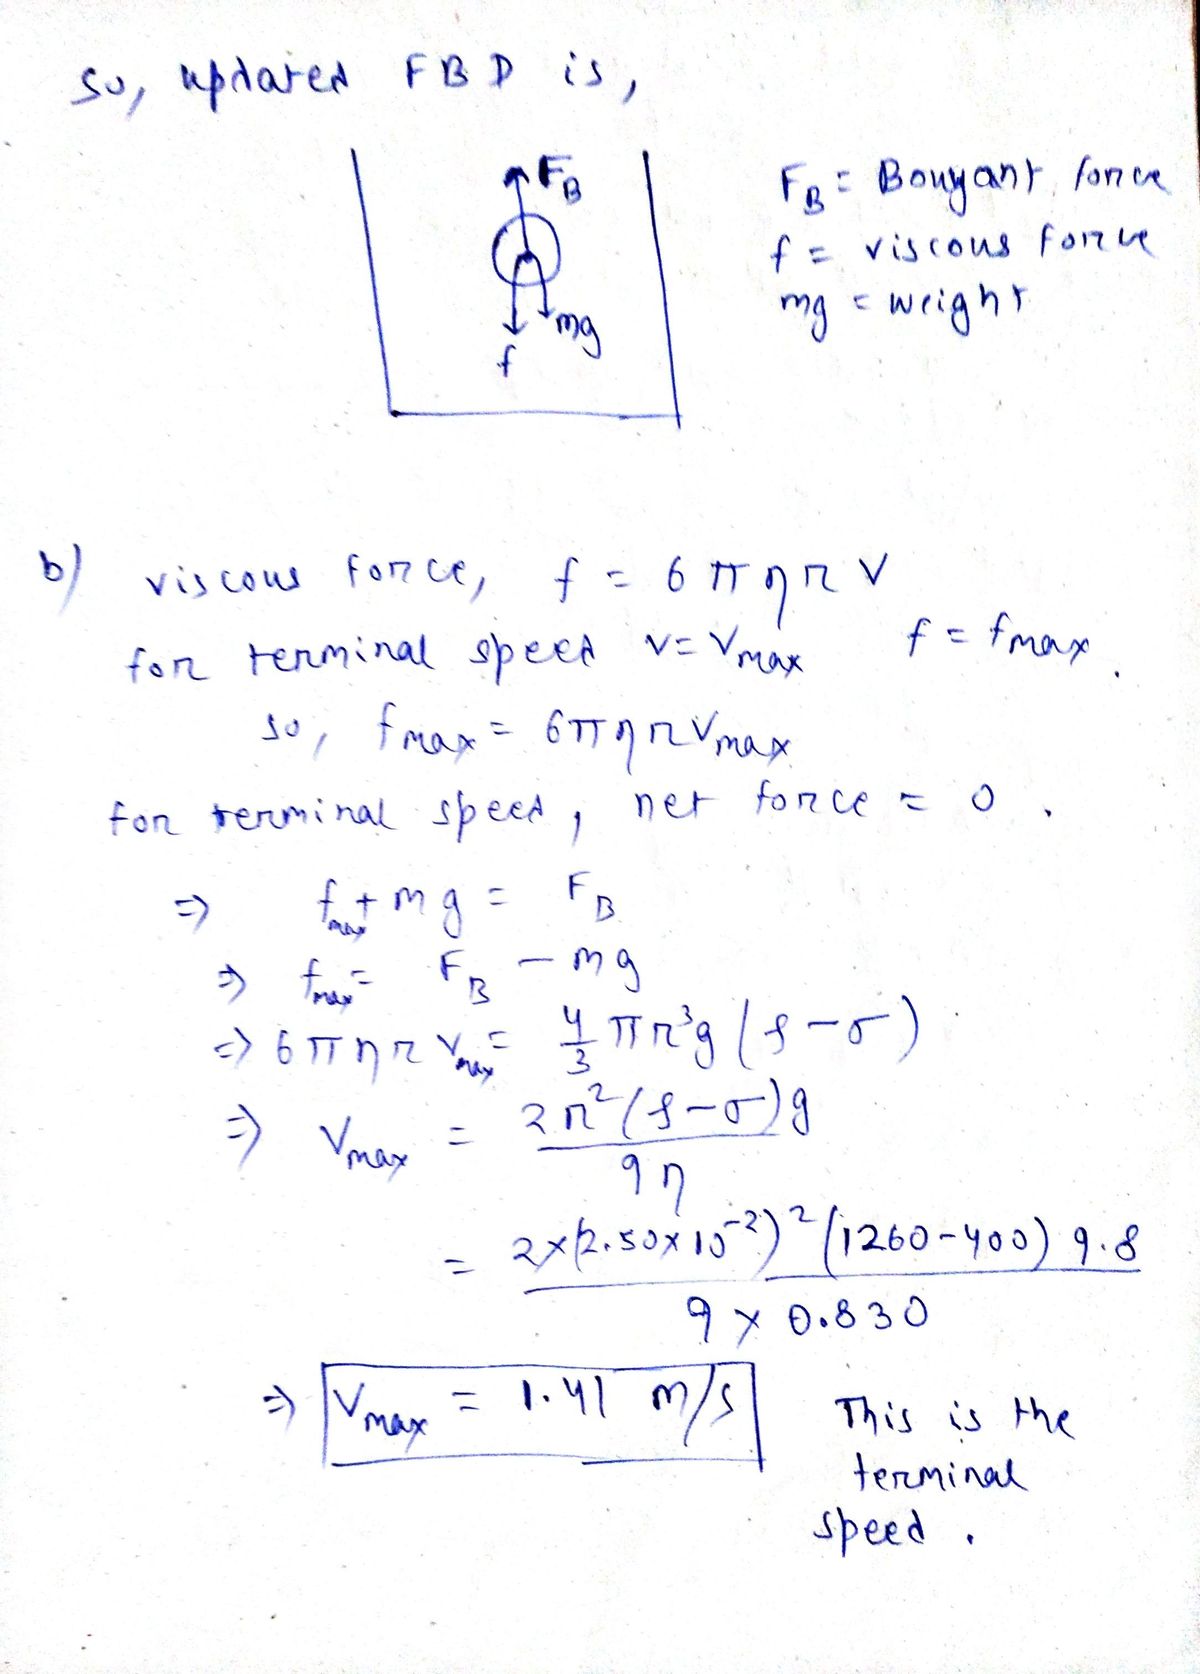 so, updated FBD is,
F_B
mg
f
F_B = Bouyant force
f = viscous force
mg = weight
b) viscous force, f = 6πηrv
for terminal speed v = v_max f = f_max.
so, f_max = 6πηrv_max
for terminal speed, net force = 0.
⇒ f_max + mg = F_B
⇒ f_max = F_B − mg
⇒ 6πηr v_max = 4/3 πr³g (ρ−σ)
⇒ v_max = 2r²(ρ−σ)g / 9η
= 2×(2.50×10⁻²)² (1260−400) 9.8 / 9 × 0.830
⇒ v_max = 1.41 m/s
This is the
terminal
speed.